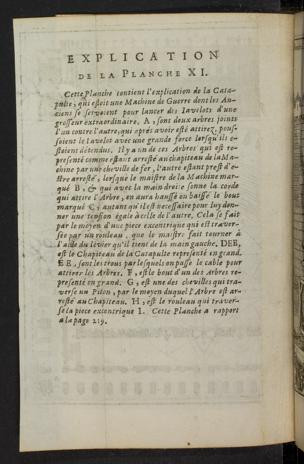 EXPLICATION
DE LA PLANCHE XI.
Cette Planche contient l'explication de la Cata-
pulte, qui estoit une Machine de Guerre dont les An-
ciens se servoient pour lancer des Iavelots d'une
grosseur extraordinaire. A, sont deux arbres joints
l'un contre l'autre, qui aprés avoir esté attirez, pous-
soient le Iavelot avec une grande force lorsqu'ils e-
stoient détendus. Il y a un de ces Arbres qui est re-
presenté comme estant arresté au chapiteau de la Ma-
chine par une cheville de fer, l'autre estant prest d'e-
stre arresté, lorsque le maistre de la Machine mar-
qué B, & qui avec la main droite sonne la corde
qui attire l'Arbre, en aura haussé ou baissé le bout
marqué C, autant qu'il est necessaire pour luy don-
ner une tension égale à celle de l'autre. Cela se fait
par le moyen d'une piece excentrique qui est traver-
sée par un rouleau, que le maistre fait tourner à
l'aide du levier qu'il tient de la main gauche. DEE,
est le Chapiteau de la Catapulte representé en grand.
EE, sont les trous par lesquels on passe le cable pour
attirer les Arbres. F, est le bout d'un des Arbres re-
presenté en grand. G, est une des chevilles qui tra-
verse un Piton, par le moyen duquel l'Arbre est ar-
resté au Chapiteau. H, est le rouleau qui traver-
se la piece excentrique I. Cette Planche a rapport
à la page 219.